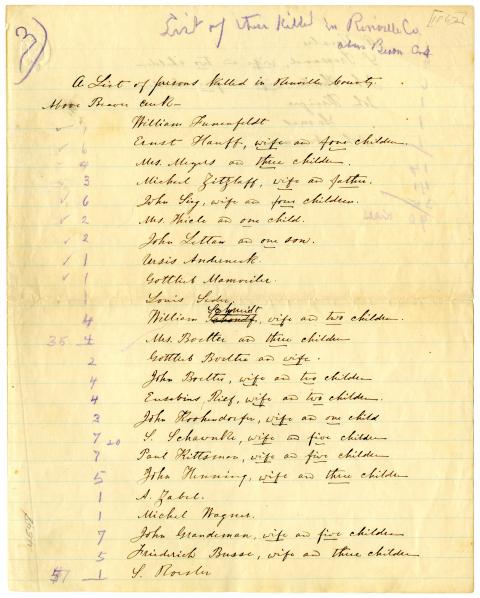 3)
List of those Killed in Renville Co.
above Beaver Creek
A List of persons Killed in Renville County
Above Beaver creek –
1 William Funenfeldt
6 Ernst Hauff, wife an four children
4 Mrs. Meyers an three children
3 Michel Zitzlaff, wife an father.
6 John Sieg, wife an four children.
2 Mrs. Thiele an one child.
2 John Lettau an one son.
1 Versis Anderneck.
1 Gottlieb Mamoriler.
1 Louis Seder,
Schmidt
4 William, wife an two children.
35 4 Mrs. Boetter an three children
2 Gottlieb Boetter an wife.
4 John Boetter, wife an two children
4 Eusebius Rief, wife an two children.
3 John Kochendorfer, wife an one child
7 20 S. Schawnke, wife an five children
7 Paul Kittsman, wife an five children
5 John Henning, wife an three children
1 A. Zabel.
1 Michel Wagner.
7 John Grandeman, wife an five children
5 Friederick Busse, wife an three children
57 1 S. Roesler